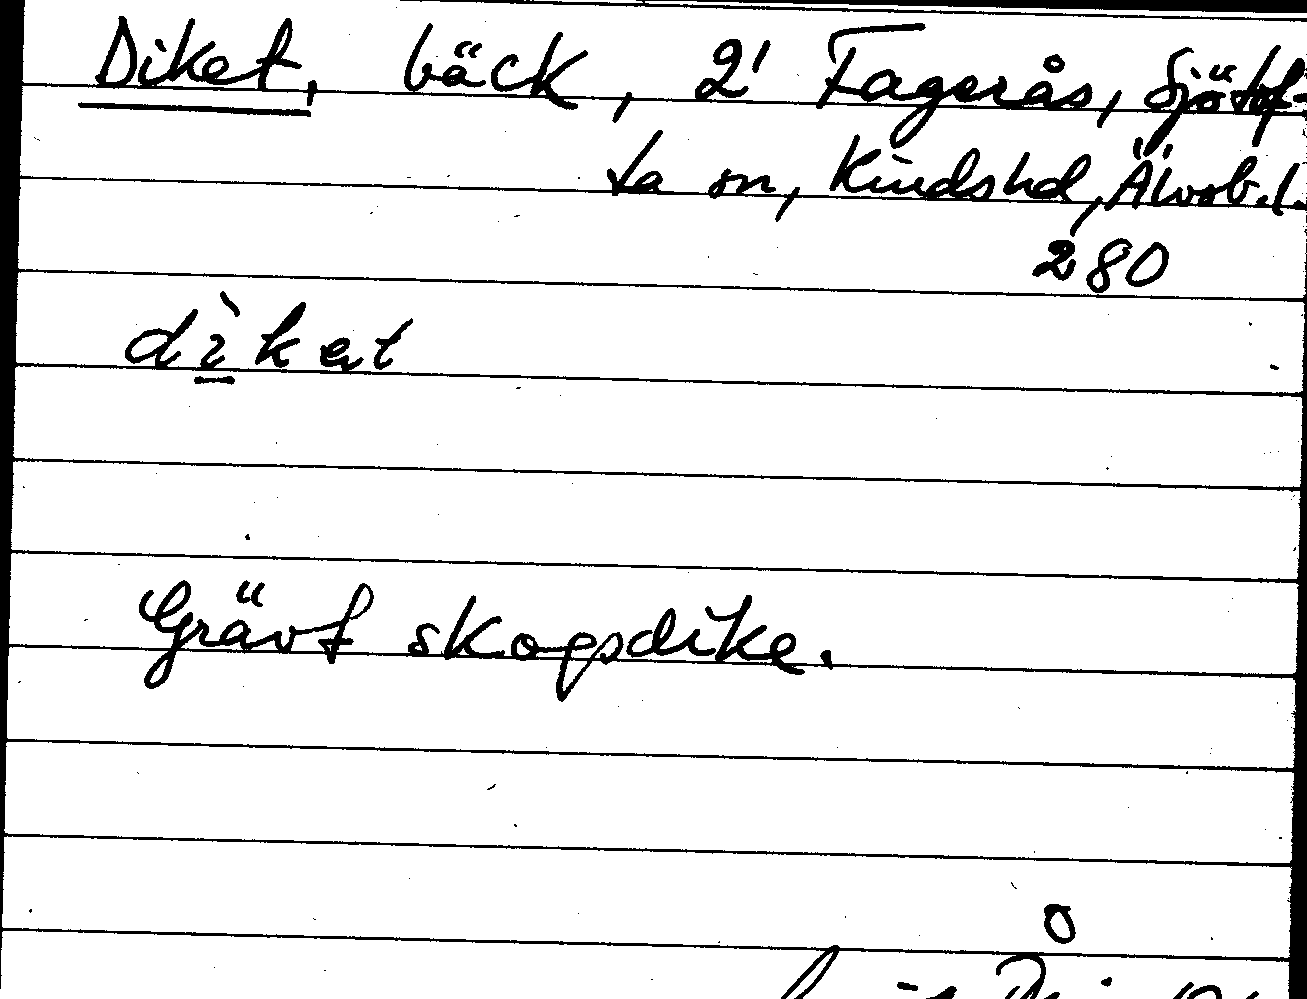 Diket, bäck, 2' Fagerås, Sjötof-
ta sn, Kindshd, Älvsb. l.
280
dìkat
Grävt skogsdike.